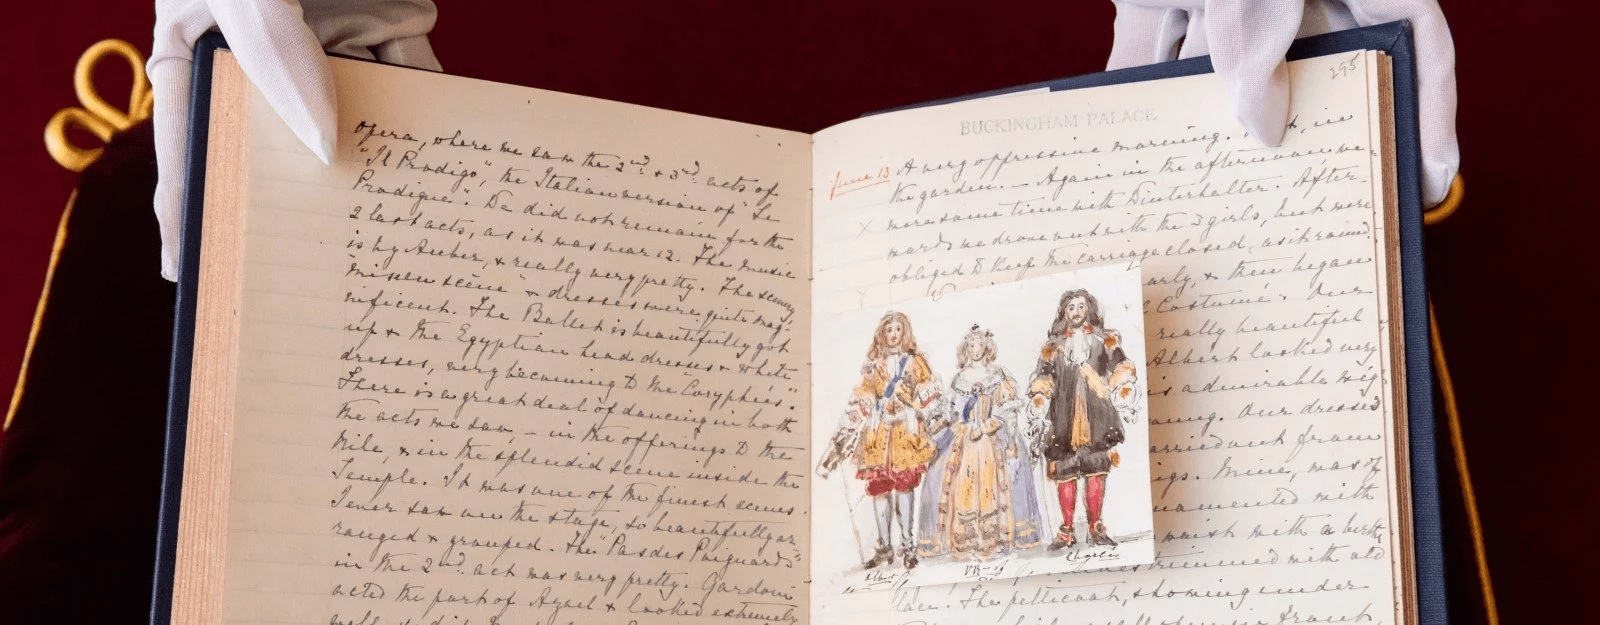 opera, where we saw the 2nd. & 3rd. acts of
"Il Prodigo", the Italian version of "Le
Prodigue". We did not remain for the
2 last acts, as it was near 12. The music
is by Auber, & really very pretty. The scenery,
"mise en scène" & dresses were quite mag-
nificent. The Ballet is beautifully got
up & the Egyptian head dresses & white
dresses, very becoming to the "Coryphées".
There is a great deal of dancing in both
the acts we saw, — in the offerings to the
Nile, & in the splendid scene inside the
Temple. It was one of the finest scenes
I ever saw on the stage, so beautifully ar-
ranged & grouped. The "Pas des Poignards"
in the 2nd. act was very pretty. Gardoni
acted the part of Azael & looked extremely
well
295
BUCKINGHAM PALACE
June 13 A very oppressive morning. in
the garden. — Again in the afternoon we
were some time with Winterhalter. After-
wards we drove out with the 3 girls, but were
obliged to keep the carriage closed, as it rained.
early, & then began
Costumé". Our
really beautiful
Albert looked very
is admirable wig
Our dresses
carried out from
Mine, was of
ornamented with
waist with a
trimmed with old
lace. The petticoat, showing under
Albert
VR
Charles